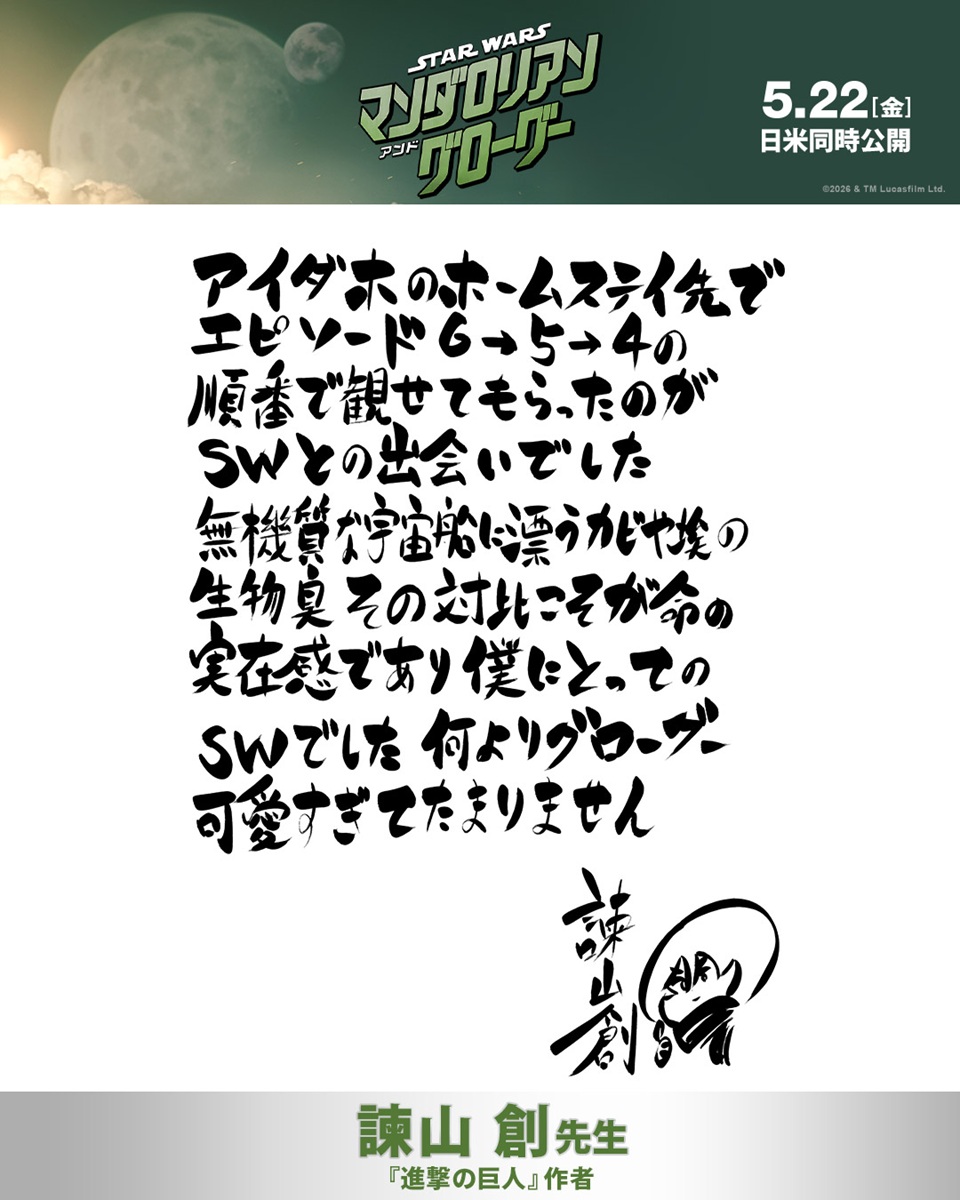 STAR WARS
マンダロリアン
アンド
グローグー
5.22[金]
日米同時公開
©2026 & TM Lucasfilm Ltd.
アイダホのホームステイ先で
エピソード6→5→4の
順番で観せてもらったのが
SWとの出会いでした
無機質な宇宙船に漂うカビや埃の
生物臭 その対比こそが命の
実在感であり僕にとっての
SWでした 何よりグローグー
可愛すぎてたまりません
諫山創
諫山 創先生
『進撃の巨人』作者